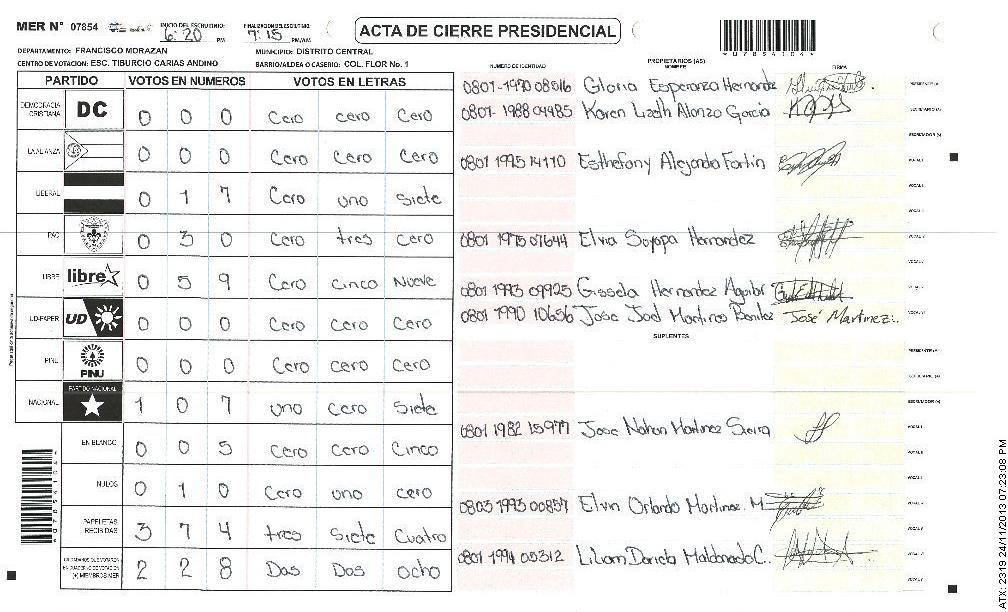 MER N° 07854 INICIO DEL ESCRUTINIO: 6:20 PM FINALIZACION DEL ESCRUTINIO: 7:15 PM/AM
ACTA DE CIERRE PRESIDENCIAL
DEPARTAMENTO: FRANCISCO MORAZAN MUNICIPIO: DISTRITO CENTRAL
CENTRO DE VOTACION: ESC. TIBURCIO CARIAS ANDINO BARRIO/ALDEA O CASERIO: COL. FLOR No. 1
PARTIDO VOTOS EN NUMEROS VOTOS EN LETRAS
DEMOCRACIA CRISTIANA DC 0 0 0 Cero cero Cero
LA ALIANZA 0 0 0 Cero Cero Cero
LIBERAL 0 1 7 Cero uno Siete
PAC 0 3 0 Cero tres cero
LIBRE libre 0 5 9 Cero Cinco Nueve
UD-FAPER UD 0 0 0 Cero Cero Cero
PINU PINU 0 0 0 Cero cero Cero
NACIONAL PARTIDO NACIONAL 1 0 7 uno Cero Siete
EN BLANCO 0 0 5 Cero Cero Cinco
NULOS 0 1 0 Cero uno cero
PAPELETAS RECIBIDAS 3 7 4 tres Siete Cuatro
(+) MIEMBROS MER 2 2 8 Dos Dos ocho
NUMERO DE IDENTIDAD PROPIETARIOS (AS) NOMBRE FIRMA
0801-1970 08516 Gloria Esperanza Hernandez
0801-1988 04985 Karen Lizeth Alonzo Garcia
0801 1995 14110 Esthefany Alejandra Fortin
0801 1975 07644 Elvia Soyapa Hernandez
0801 1993 09925 Gissela Hernandez Aguilar
0801 1990 10656 Jose Joel Martinez Benitez José Martinez
SUPLENTES
0801 1982 15977 Jose Nahun Martinez Sierra
0803 1993 00857 Elvin Orlando Martinez M
0801 1994 05312 Lilian Dariela Maldonado C.
ATX: 2319 24/11/2013 07:23:08 PM